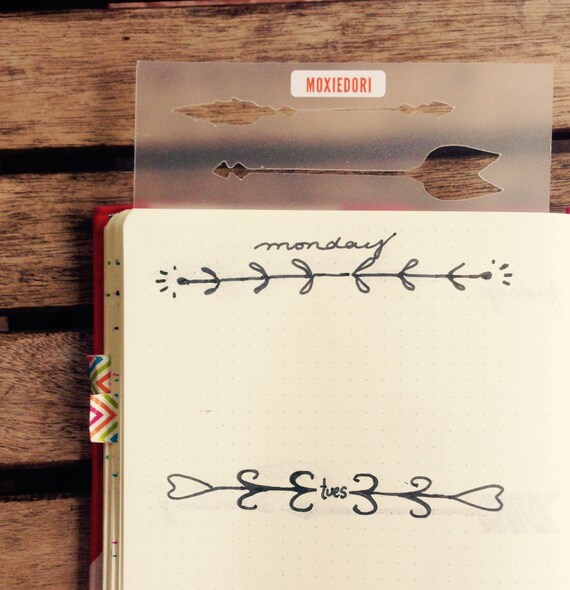 MOXIEDORI
monday
tues